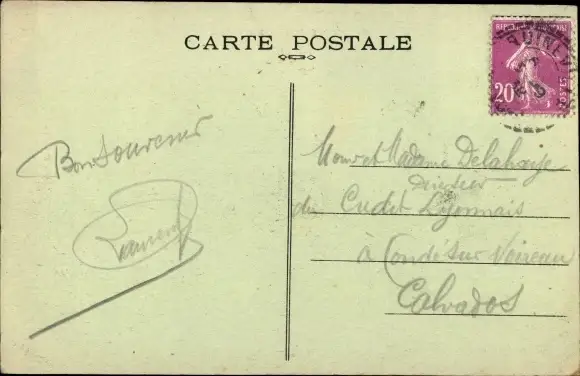 CARTE POSTALE
RÉPUBLIQUE FRANÇAISE
20
POSTES
Bon Souvenir
Laurent
Monsr et Madame Delahaye
Directeur
du Crédit Lyonnais
à Condé sur Noireau
Calvados